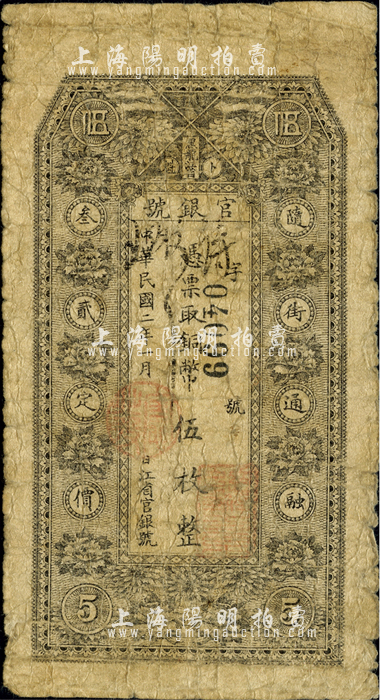 上海陽明拍賣
www.yangmingauction.com
伍 伍
官銀號
字
號
憑票取銅幣伍枚整
中華民國二年 月 日江省官銀號
隨街通融
叁貳定價
上海陽明拍賣
www.yangmingauction.com
5 5
上海陽明拍賣
www.yangmingauction.com